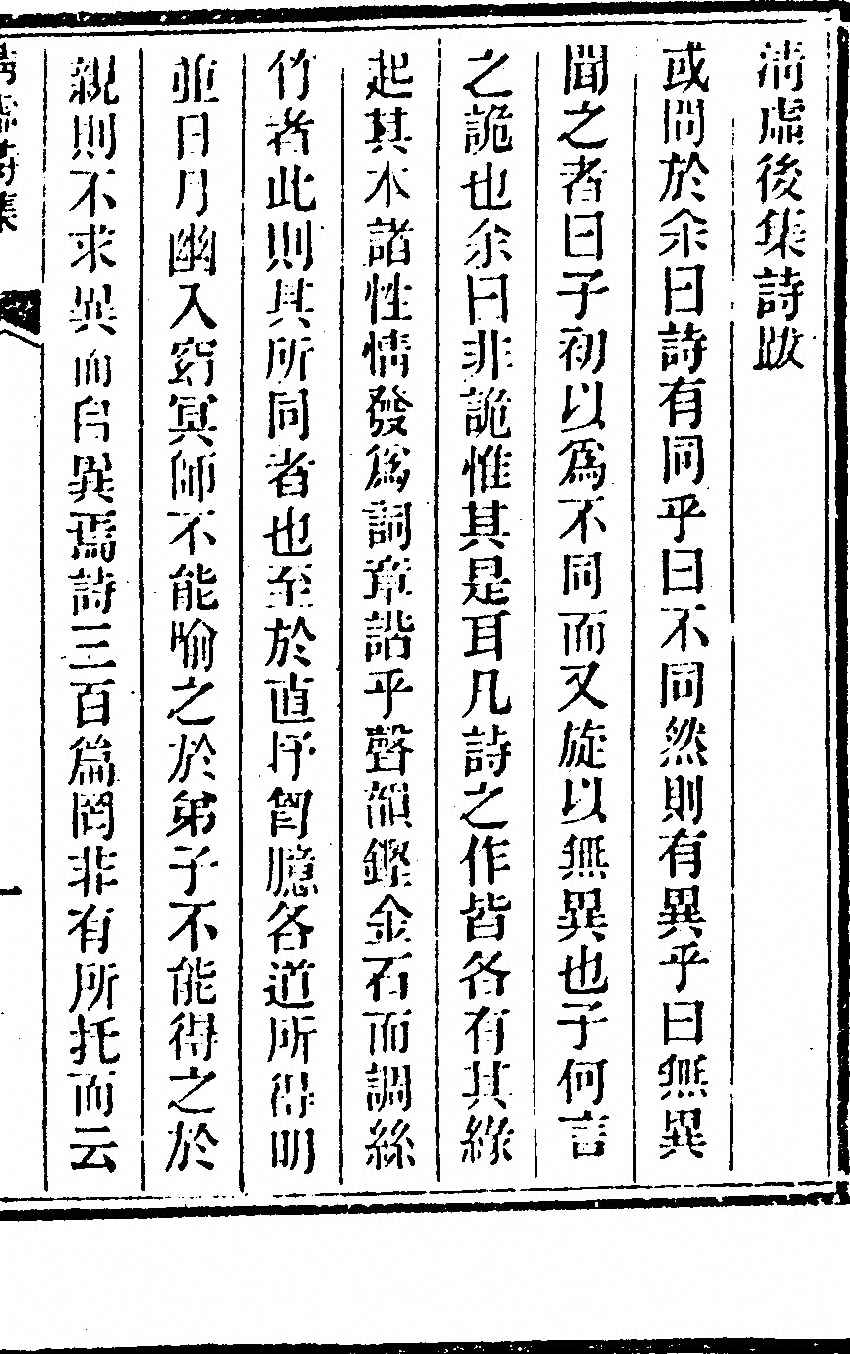 清虛後集詩跋
或問於余曰詩有同乎曰不同然則有異乎曰無異
聞之者曰子初以爲不同而又旋以無異也子何言
之詭也余曰非詭惟其是耳凡詩之作皆各有其緣
起其本諸性情發爲詞章諧乎聲韻鏗金石而調絲
竹者此則其所同者也至於直抒胷臆各道所得明
並日月幽入窈冥師不能喻之於弟子不能得之於
親則不求異而自異焉詩三百篇罔非有所托而云
清虛詩集
一